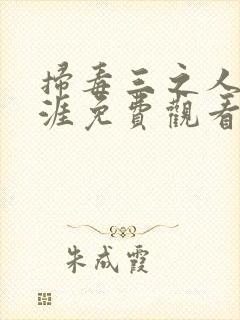 掃毒三之人
涯免費觀看
朱成霞